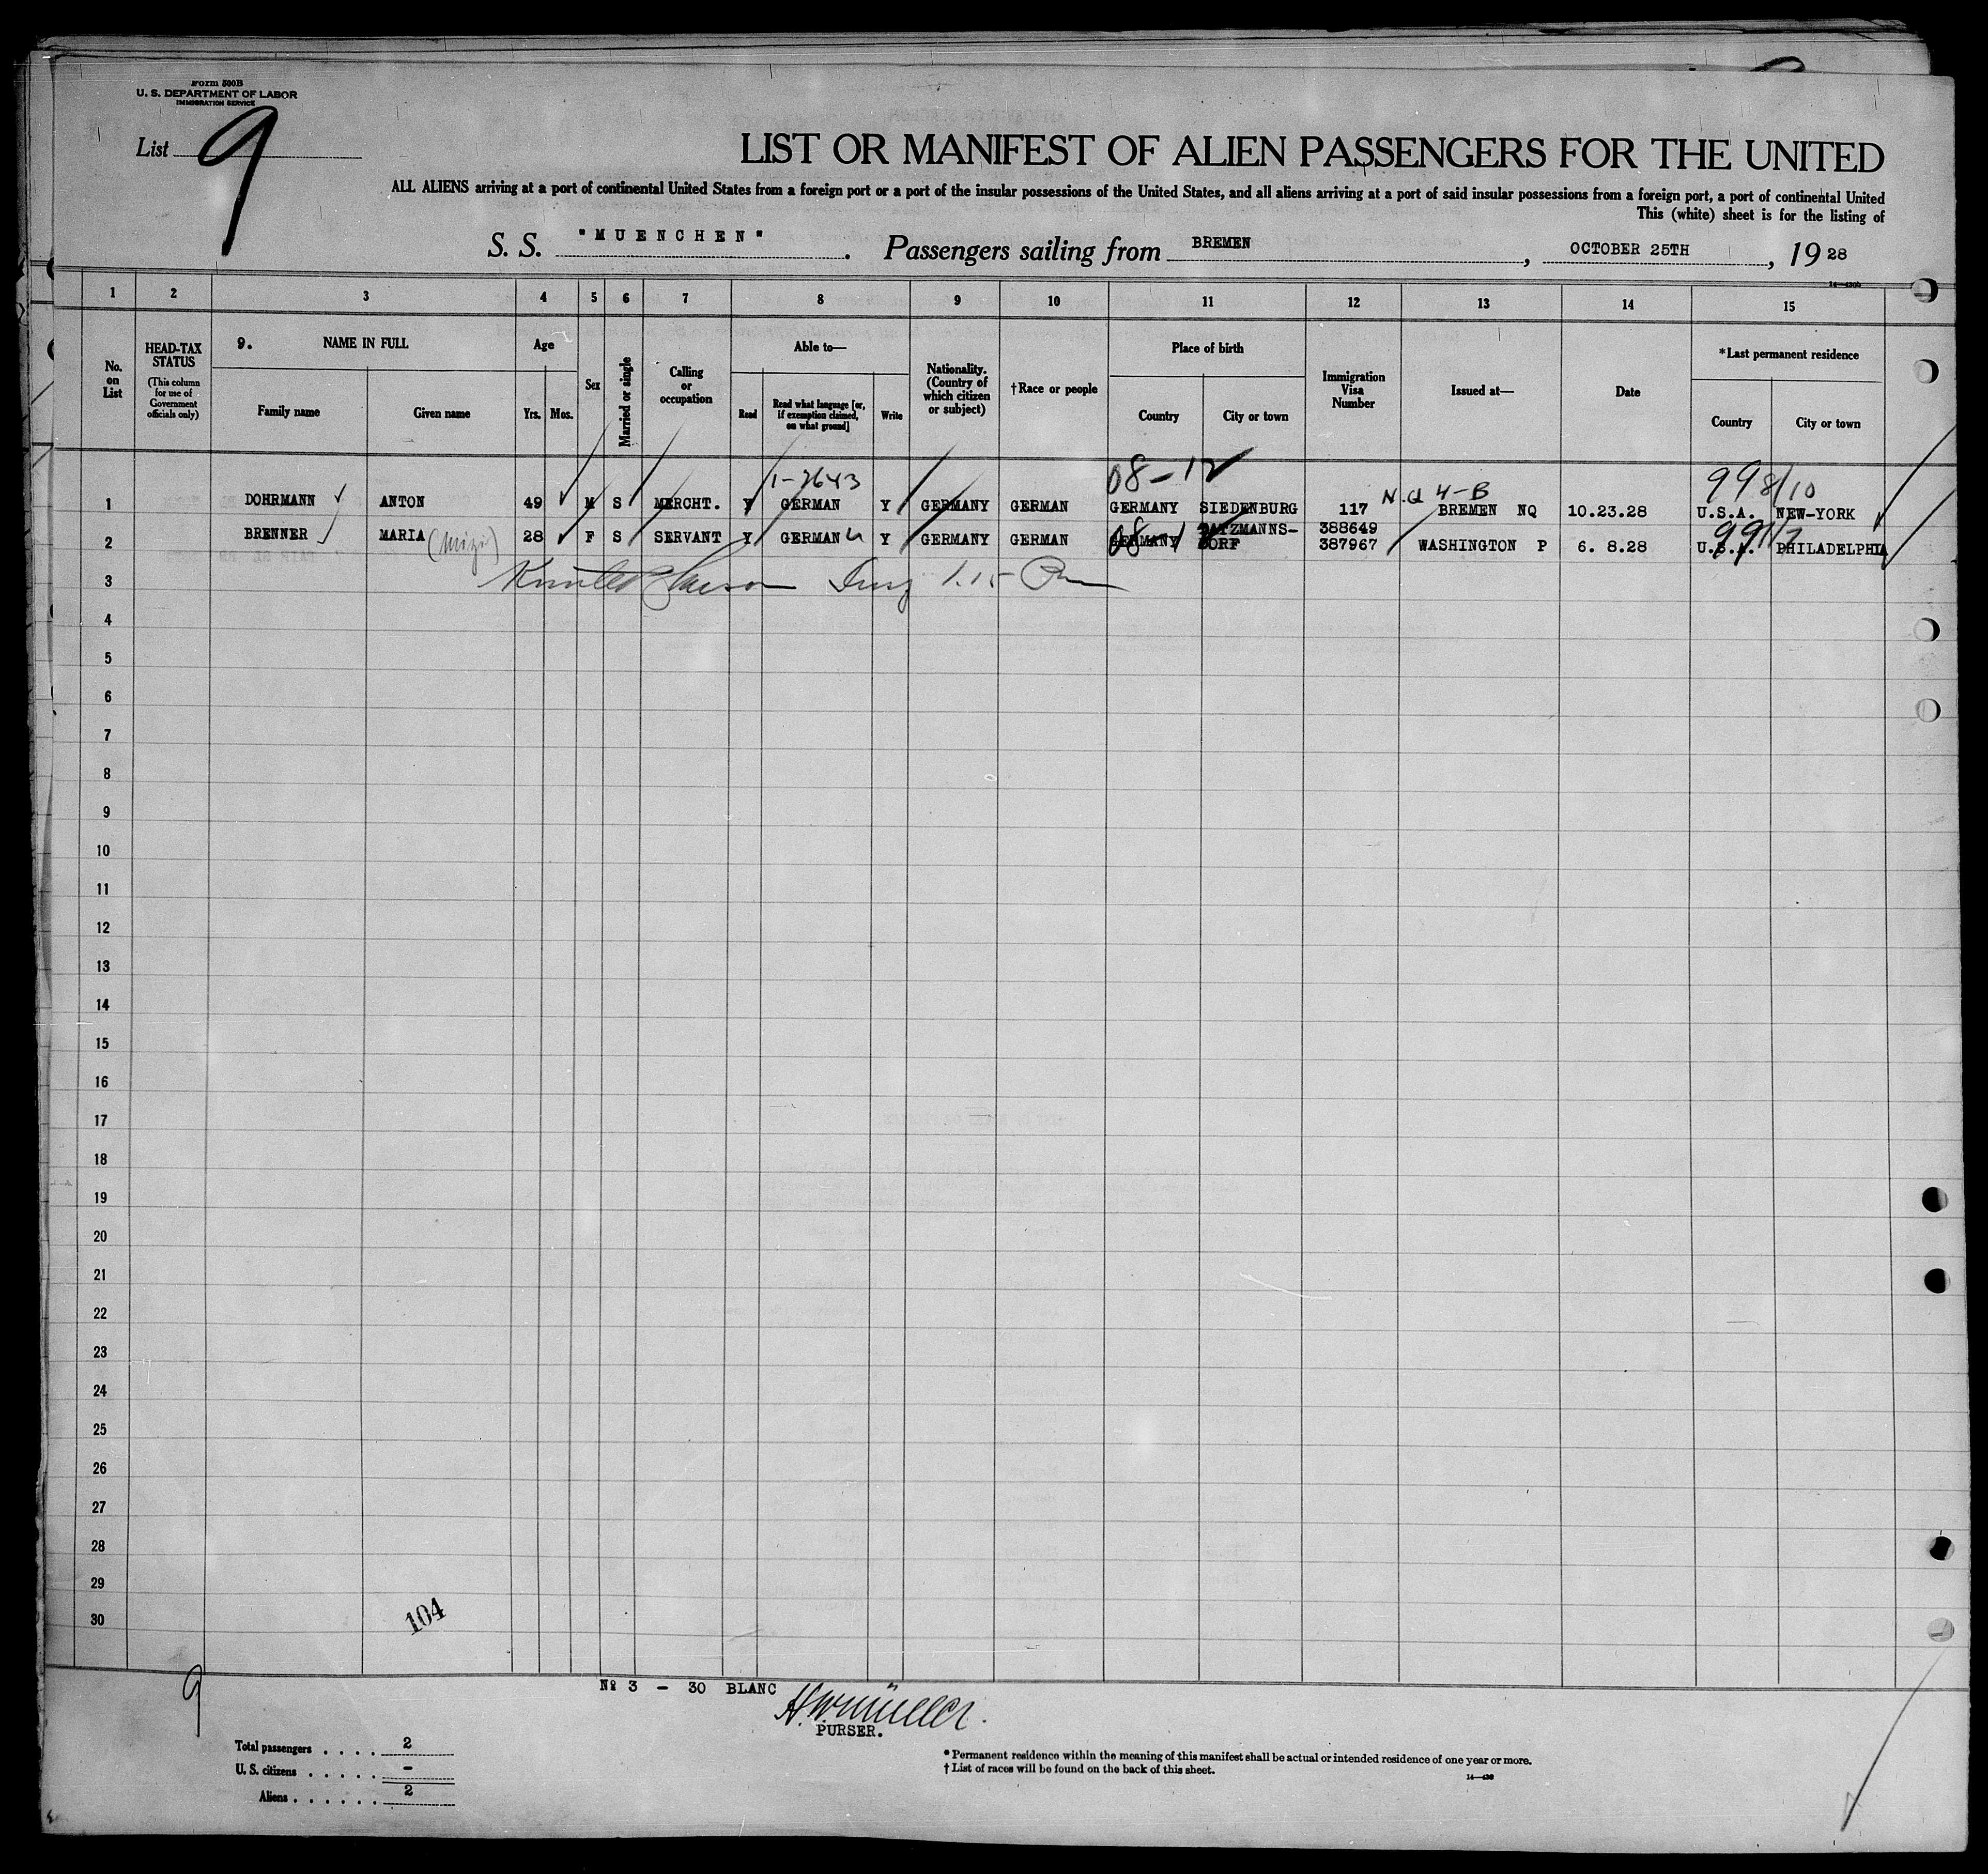 Form 500B
U. S. DEPARTMENT OF LABOR
IMMIGRATION SERVICE
List 9
LIST OR MANIFEST OF ALIEN PASSENGERS FOR THE UNITED
ALL ALIENS arriving at a port of continental United States from a foreign port or a port of the insular possessions of the United States, and all aliens arriving at a port of said insular possessions from a foreign port, a port of continental United
This (white) sheet is for the listing of
S. S. "MUENCHEN". Passengers sailing from BREMEN, OCTOBER 25TH, 1928
1 2 3 4 5 6 7 8 9 10 11 12 13 14 15
No. on List
HEAD-TAX STATUS
(This column for use of Government officials only)
9. NAME IN FULL
Family name Given name
Age
Yrs. Mos.
Sex
Married or single
Calling or occupation
Able to—
Read
Read what language [or, if exemption claimed, on what ground]
Write
Nationality. (Country of which citizen or subject)
†Race or people
Place of birth
Country City or town
Immigration Visa Number
Issued at—
Date
*Last permanent residence
Country City or town
1-2643 08-12 N.Q 4-B 99 8/10
1 DOHRMANN ANTON 49 M S MERCHT. Y GERMAN Y GERMANY GERMAN GERMANY SIEDENBURG 117 BREMEN NQ 10.23.28 U.S.A. NEW-YORK
388649
2 BRENNER MARIA 28 F S SERVANT Y GERMAN Y GERMANY GERMAN GERMANY DORF 387967 WASHINGTON P 6. 8.28 U.S.A. PHILADELPHIA
3 1.15 Pm
4
5
6
7
8
9
10
11
12
13
14
15
16
17
18
19
20
21
22
23
24
25
26
27
28
29
30
104
9
№ 3 - 30 BLANC
H. W. Müller.
PURSER.
Total passengers . . . . 2
U. S. citizens . . . . . -
Aliens . . . . . . 2
*Permanent residence within the meaning of this manifest shall be actual or intended residence of one year or more.
†List of races will be found on the back of this sheet.